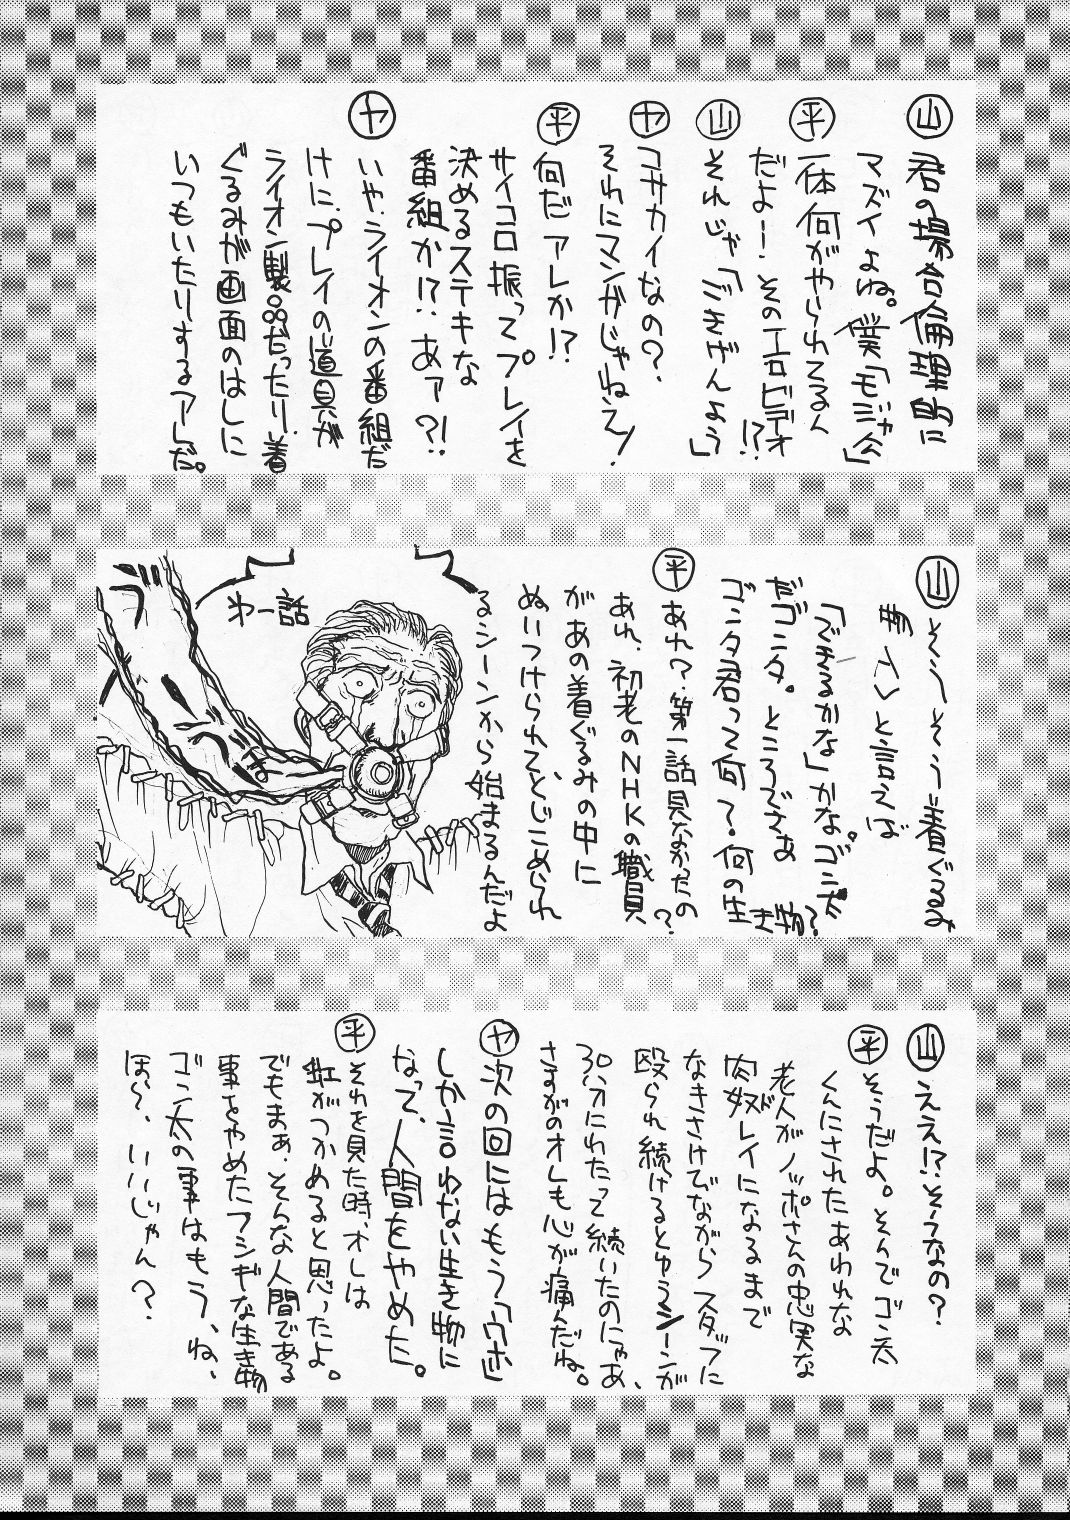 山 君の場合倫理的に
マズイよね。僕「モジャ公」
平 一体何がやられてるん
だよー! そのエロビデオ!?
山 それじゃ「ごきげんよう」
ヤ コサカイなの?
それにマンガじゃねえ!
平 何だアレか!?
サイコロ振ってプレイを
決めるステキな
番組か!? あァ?!
ヤ いや、ライオンの番組だ
けに、プレイの道具が
ライオン製品だったり、着
ぐるみが画面のはしに
いつもいたりするアレだ。
山 そう〜そう〜着ぐるみ
典人と言えば
「できるかな」かな。ゴン太
だゴンタ。ところでさぁ
ゴンタ君って何?何の生き物?
平 あれ?第一話見なかったの?
あれ、初老のNHKの職員
があの着ぐるみの中に
ぬいつけられて、とじこめられ
るシーンから始まるんだよ
第一話
山 ええ!?そうなの?
平 そうだよ。そんでゴン太
くんにされたあわれな
老人がノッポさんの忠実な
肉奴レイになるまで
なきさけびながらスタッフに
殴られ続けるとゆうシーンが
30分にわたって続いたのにゃあ、
さすがのオレも心が痛んだね。
ヤ 次の回にはもう「ウホ」
しか言わない生き物に
なって、人間をやめた。
平 それを見た時、オレは
虹がつかめると思ったよ。
でもまぁ、そんな人間である
事をやめたフシギな生き物
ゴン太の事はもう、ね、
ほら、いいじゃん?